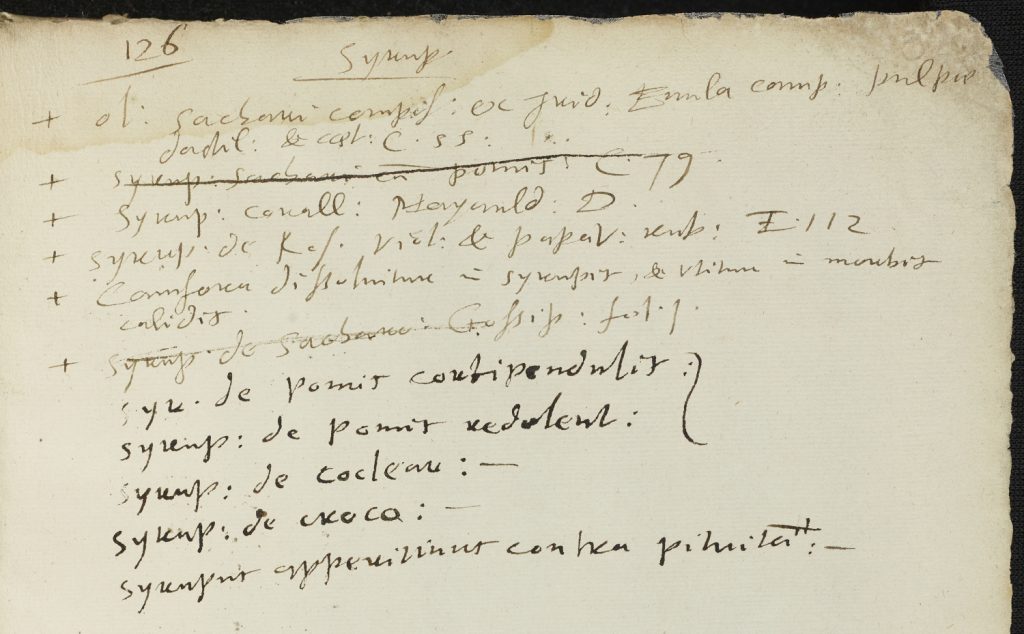 126 Syrup.
+ ol: Sachari composs: ex Irid: Enula comp: pulpis
dactil: & cęt: C. ss:
+ syrup: Sachari cū pomis: C. 79
+ Syrup: corall: Mayauld: D.
+ syrup. de Ros. viol: & papav: rub: E. 112
+ Camfora dissoluitur in syrupis, & vtitur in morbis
calidis.
+ syrup. de Sacharo: Gossip: fol. j.
syr. de pomis cortipendulis:
syrup: de pomis redolent:
syrup: de coclear: —
syrup: de croco: —
syrupus apperitiuus contra pituitā: —